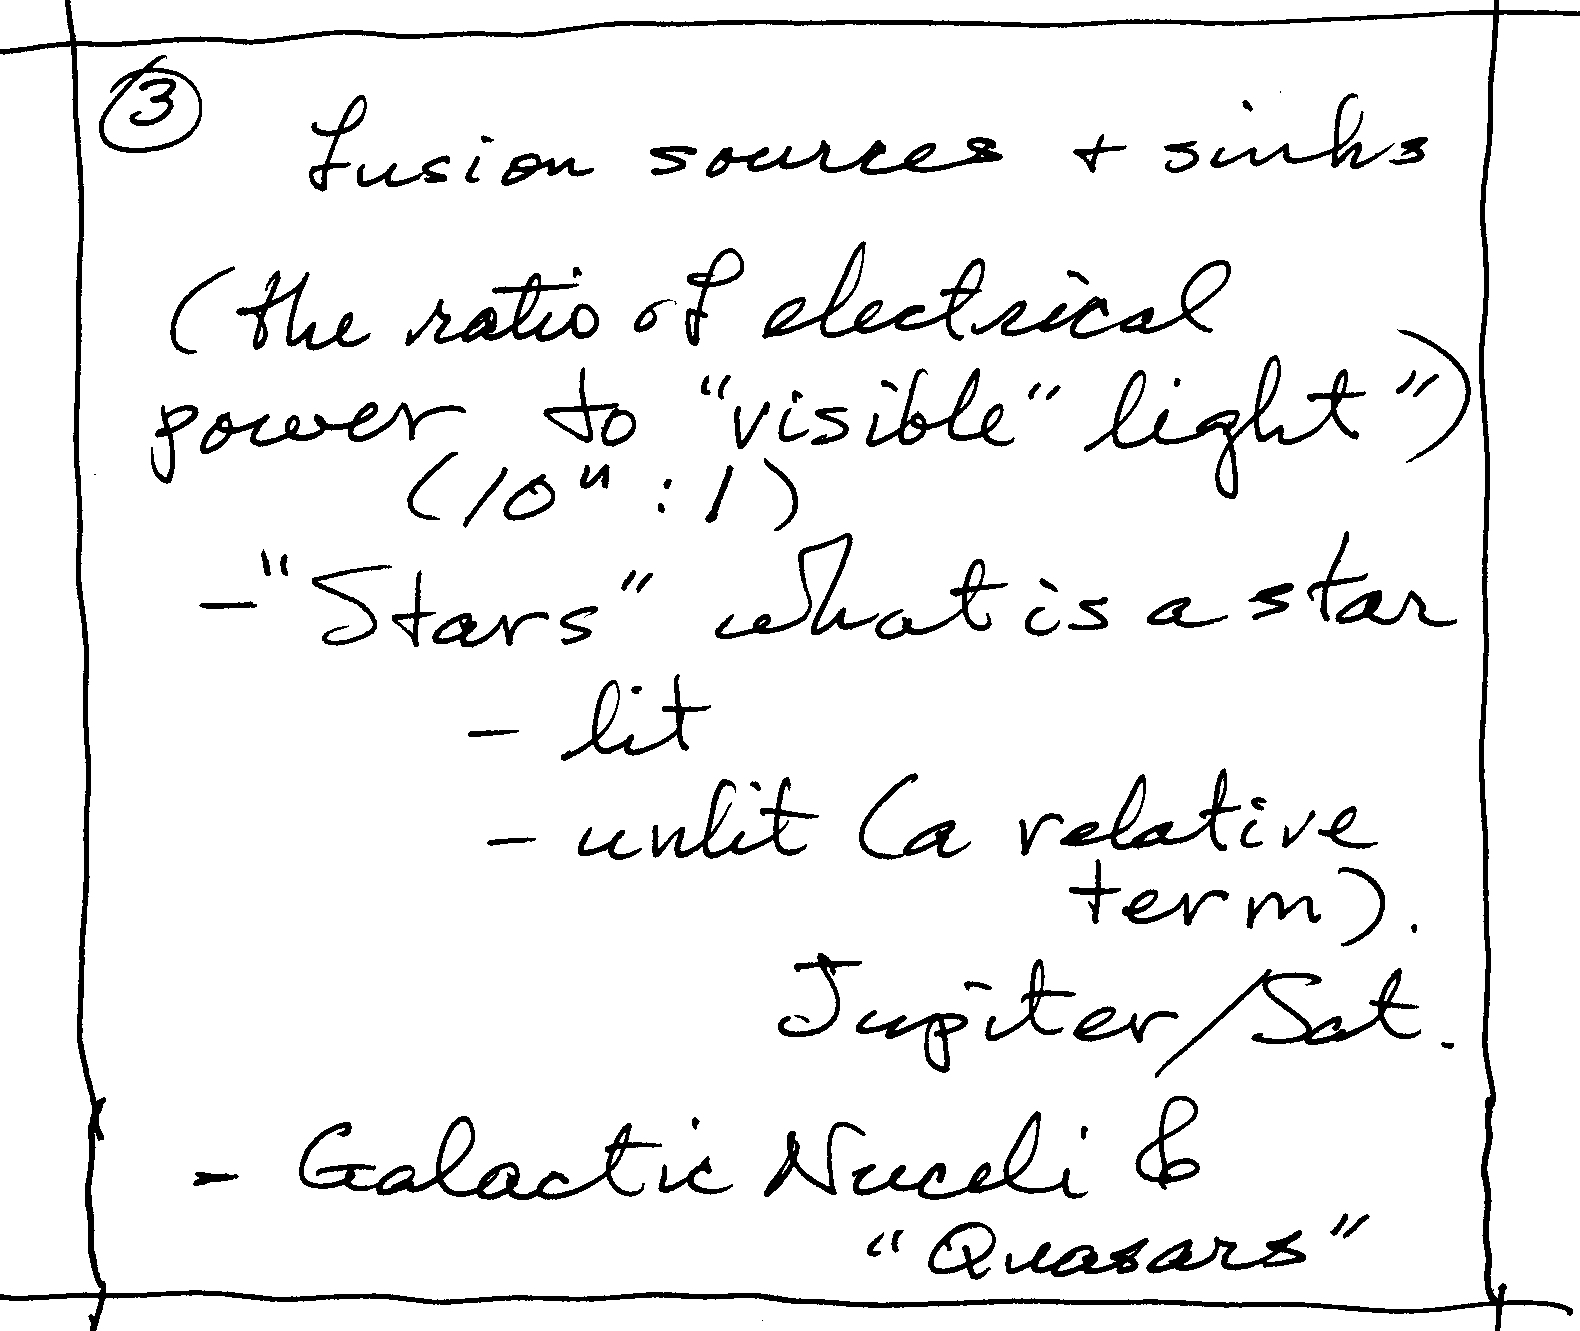 ③
fusion sources + sinks
(the ratio of electrical
power to "visible" light")
(10" : 1)
- "Stars" what is a star
- lit
- unlit (a relative
term).
Jupiter/Sat.
- Galactic Nuceli &
"Quasars"